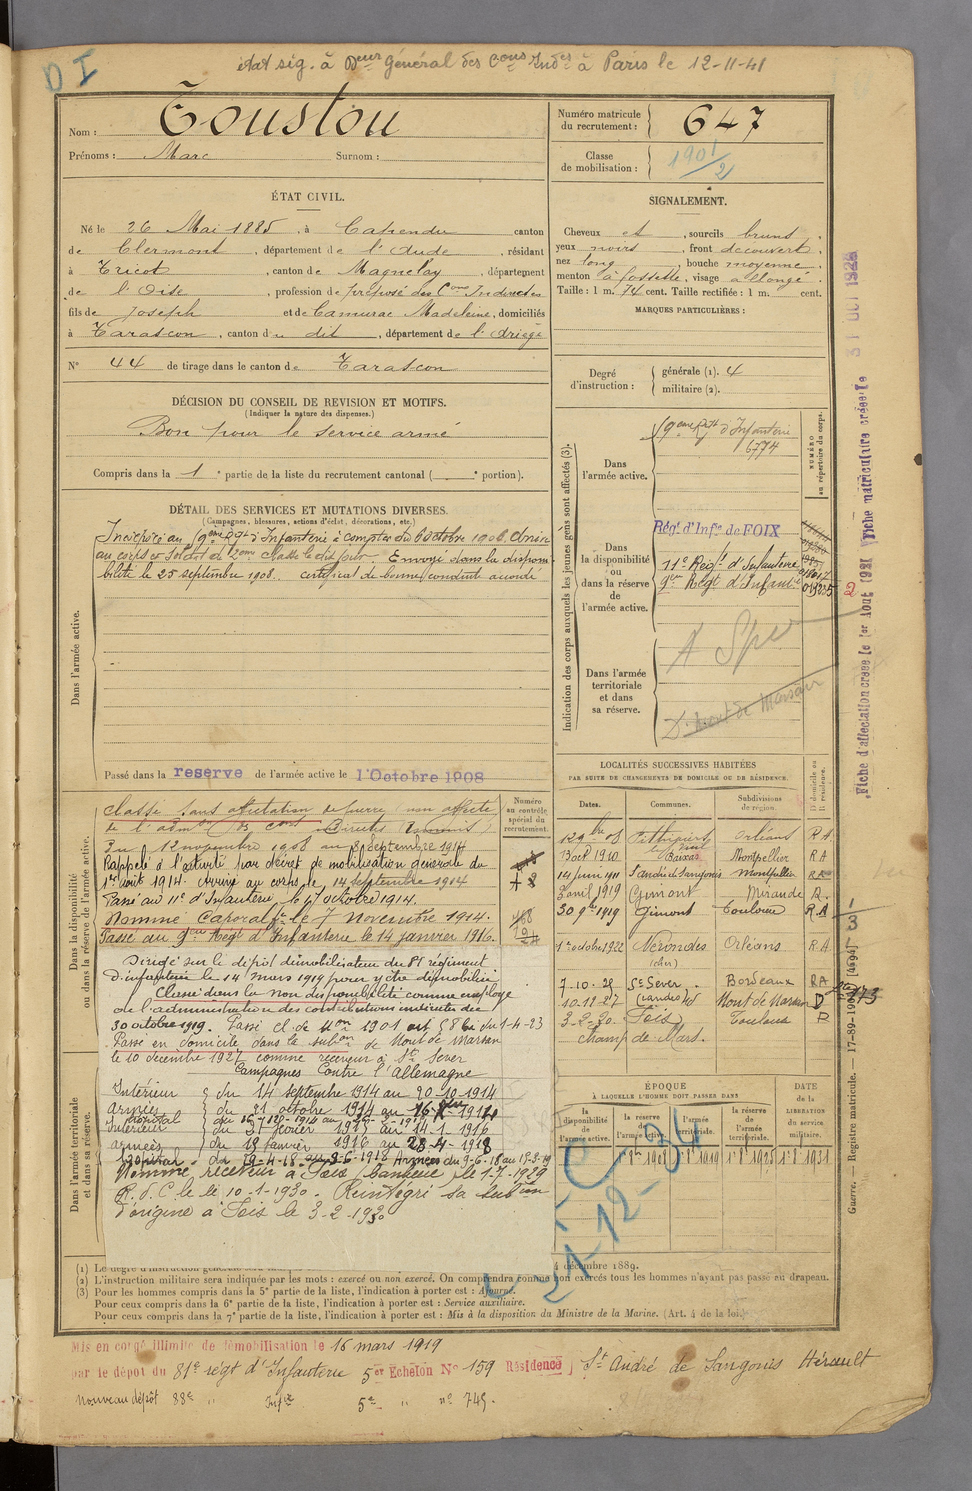 D I
état sig. à Deur Général des Cons Indes à Paris le 12-11-41
Nom : Toustou
Prénoms : Marc Surnom :
Numéro matricule du recrutement : 647
Classe de mobilisation : 1901/2
ÉTAT CIVIL.
Né le 26 Mai 1885, à Capendu canton
de Clermont, département de l'Aude, résidant
à Tricot, canton de Magnelay, département
de l'Oise, profession de préposé des Cons Indirectes
fils de Joseph et de Camurac Madeleine, domiciliés
à Tarascon, canton du dit, département de l'Ariège
N° 44 de tirage dans le canton de Tarascon
SIGNALEMENT.
Cheveux et, sourcils bruns.
yeux noirs, front découvert.
nez long, bouche moyenne.
menton à fossette, visage allongé.
Taille : 1 m. 74 cent. Taille rectifiée : 1 m. cent.
MARQUES PARTICULIÈRES :
Degré d'instruction : générale (1). 4
militaire (2).
DÉCISION DU CONSEIL DE REVISION ET MOTIFS.
(Indiquer la nature des dispenses.)
Bon pour le service armé
Compris dans la 1e partie de la liste du recrutement cantonal ( e portion).
DÉTAIL DES SERVICES ET MUTATIONS DIVERSES.
(Campagnes, blessures, actions d'éclat, décorations, etc.)
Incorporé au 9eme Rgt d'Infanterie à compter du 6 octobre 1906. Arrivé
au corps et soldat de 2eme classe le dit jour Envoyé dans la disponi-
bilité le 25 septembre 1908. certificat de bonne conduite accordé
Dans l'armée active.
Passé dans la reserve de l'armée active le 1 Octobre 1908
Indication des corps auxquels les jeunes gens sont affectés (3).
NUMÉRO au répertoire du corps.
Dans l'armée active.
9eme Rgt d'Infanterie
6774
Dans la disponibilité ou dans la réserve de l'armée active.
Régt d'Infie de FOIX
11e Régt d'Infanterie
9eme Régt d'Infantie
Dans l'armée territoriale et dans sa réserve.
Dt Mont de Marsan
LOCALITÉS SUCCESSIVES HABITÉES
PAR SUITE DE CHANGEMENTS DE DOMICILE OU DE RÉSIDENCE.
Dates. Communes. Subdivisions de région. D. domicile ou R. résidence.
12 9bre 08 Pithiviers Orléans R.A
13 oct 1910 Baixas Montpellier R A
14 juin 1911 St André de Sangonis Montpellier R A
3 avril 1919 Gimont Mirande R.
30 9bre 1919 Gimont Toulouse R.A
1er octobre 1922 Nérondes Orléans R.A
(cher)
7-10-25 St Sever Bordeaux RA
10.12-27 (Landes) id Mont de Marsan D
3-2-30 Foix Toulouse R
champ de Mars.
Dans la disponibilité ou dans la réserve de l'armée active.
Numéro au contrôle spécial du recrutement.
Classé sans affectation de guerre (non affecté
de l'admon des Cons Directes
Du 12 novembre 1908 au septembre 1914
Rappelé à l'activité par décret de mobilisation générale du
1er août 1914. Arrivé au corps le 14 septembre 1914
Passé au 11e d'Infanterie, le 17 octobre 1914.
Nommé Caporal le 7 Novembre 1914.
Passé au 9eme Régt d'Infanterie le 14 janvier 1916.
Dirigé sur le dépôt démobilisateur du 81 régiment
d'infanterie le 14 mars 1919 pour y être démobilisé
Classé dans la non disponibilité comme employé
de l'administration des contributions indirectes du
30 octobre 1919. Passé cl de Mon 1901 art 58 du 1-4-23
Passé en domicile dans la subon de Mont de Marsan
le 10 decembre 1927 comme receveur à St Sever
Campagnes Contre l'Allemagne
Intérieur du 14 septembre 1914 au 20-10-1914
Armées du 21 octobre 1914 au
Intérieur au 14-1-1916
armées du 15 janvier 1916 au 28-4-1918
hopital du 29-4-18 au 8-6-1918 Armées du 9-6-18 au 15-3-19
Nommé receveur à Foix banlieue le 1-7-1929
R.d.C le le 10-1-1930. Reintégré sa subon
d'origine à Foix le 3-2-1930
Dans l'armée territoriale et dans sa réserve.
ÉPOQUE
À LAQUELLE L'HOMME DOIT PASSER DANS
la disponibilité de l'armée active. la réserve de l'armée active. l'armée territoriale. la réserve de l'armée territoriale.
DATE DE LA LIBÉRATION DU service militaire.
1r 8bre 1908 1r 8 1919 1r 8 1925 1r 8 1931
21-12-34
(1) Le degré d'instruction générale sera 4 décembre 1889.
(2) L'instruction militaire sera indiquée par les mots : exercé ou non exercé. On comprendra comme non exercés tous les hommes n'ayant pas passé au drapeau.
(3) Pour les hommes compris dans la 5e partie de la liste, l'indication à porter est : Ajourné.
Pour ceux compris dans la 6e partie de la liste, l'indication à porter est : Service auxiliaire.
Pour ceux compris dans la 7e partie de la liste, l'indication à porter est : Mis à la disposition du Ministre de la Marine. (Art. 4 de la loi.)
Mis en congé illimité de démobilisation le 16 mars 1919
par le dépôt du 81e régt d'Infanterie 5er Echelon N° 159 Résidence St André de Sangonis Hérault
Nouveau dépôt 88e " Infie 5e " n° 745.
Fiche d'affectation créée le 1er Aout 1921 Fiche matriculaire créée le 31 OCT 1928
Guerre. — Registre matricule. — 17-89-1905. [4694]